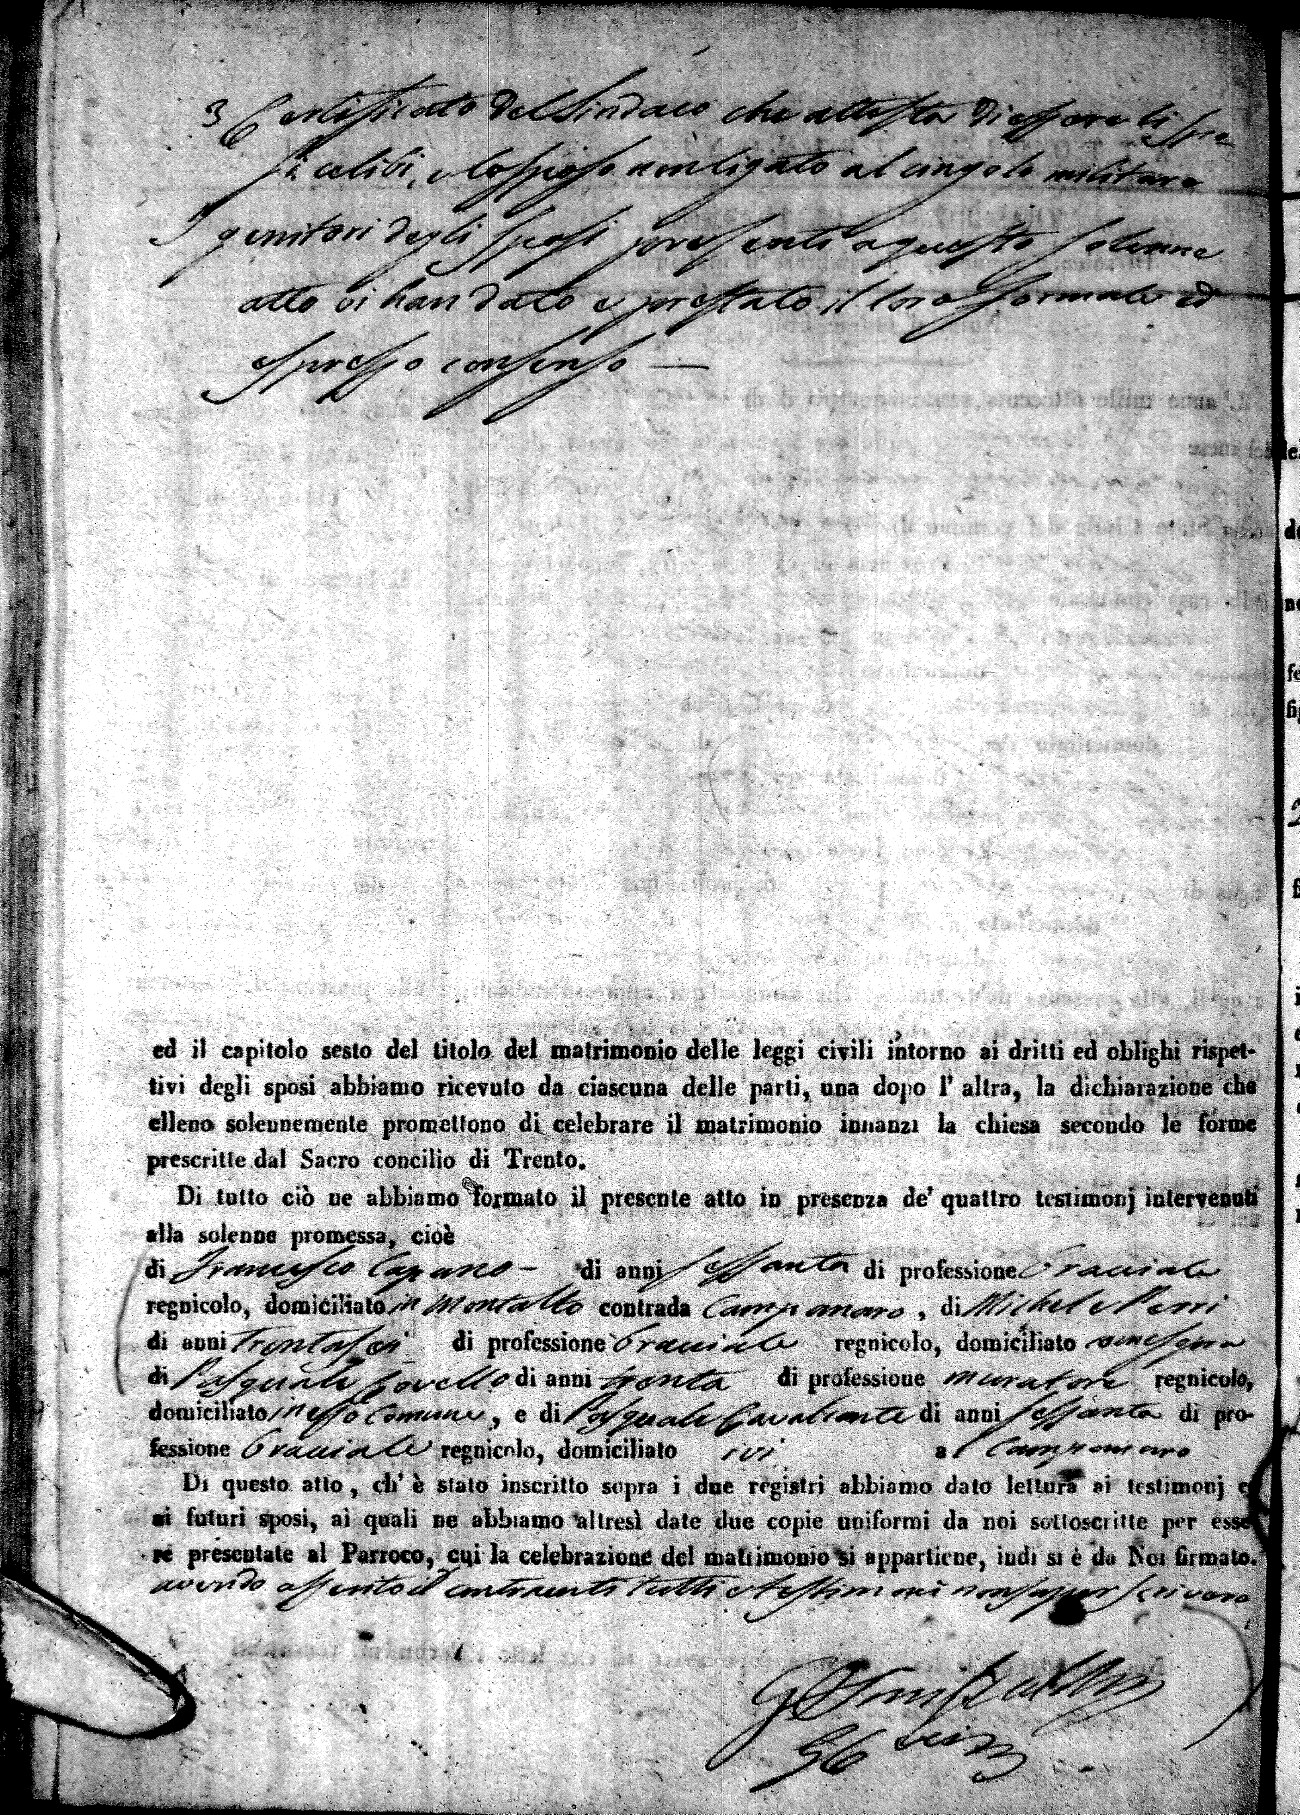 3 Certificato del Sindaco che attesta di essere li spo
si celibi, e lo sposo non ligato al cingolo militare
I genitori degli sposi presenti a questo solenne
atto vi han dato e prestato il loro formale ed
espresso consenso —
ed il capitolo sesto del titolo del matrimonio delle leggi civili intorno ai dritti ed oblighi rispet-
tivi degli sposi abbiamo ricevuto da ciascuna delle parti, una dopo l' altra, la dichiarazione che
elleno solennemente promettono di celebrare il matrimonio innanzi la chiesa secondo le forme
prescritte dal Sacro concilio di Trento.
Di tutto ciò ne abbiamo formato il presente atto in presenza de' quattro testimonj intervenuti
alla solenne promessa, cioè
di Francesco Capano – di anni sessanta di professione Bracciale
regnicolo, domiciliato in Montalto contrada Campanaro, di Michele Perri
di anni trentasei di professione Bracciale regnicolo, domiciliato
di Pasquale Covello di anni trenta di professione muratore regnicolo,
domiciliato in esso Comune, e di Pasquale Cavalcante di anni sessanta di pro-
fessione Bracciale regnicolo, domiciliato ivi al Campanaro
Di questo atto, ch' è stato inscritto sopra i due registri abbiamo dato lettura ai testimonj e
ai futuri sposi, ai quali ne abbiamo altresì date due copie uniformi da noi sottoscritte per esse-
re presentate al Parroco, cui la celebrazione del matrimonio si appartiene, indi si è da Noi firmato.
avendo asserito i contraenti tutti e testimoni non saper scrivere